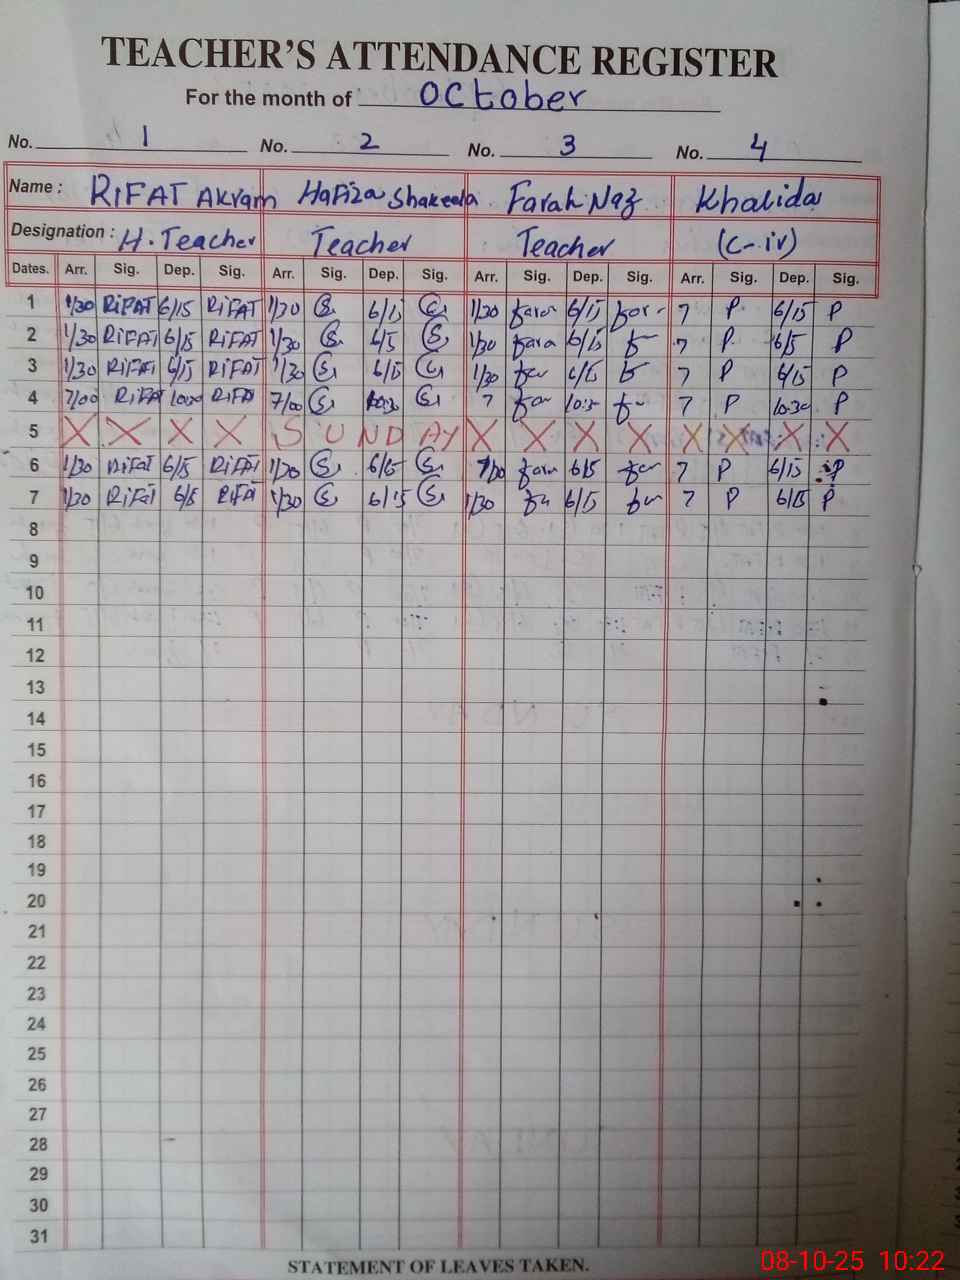 TEACHER'S ATTENDANCE REGISTER
For the month of October
No. 1 No. 2 No. 3 No. 4
Name : RiFAT Akram Hafiza Shakeela Farah Naz Khalida
Designation : H. Teacher Teacher Teacher (C-iv)
Dates. Arr. Sig. Dep. Sig. Arr. Sig. Dep. Sig. Arr. Sig. Dep. Sig. Arr. Sig. Dep. Sig.
1 1/30 RiFAT 6/15 RiFAT 1/30 S 6/15 S 1/30 fara 6/15 far 7 P 6/15 P
2 1/30 RiFAT 6/15 RiFAT 1/30 S 6/5 S 1/30 fara 6/15 7 P 6/5 P
3 1/30 RiFAT 6/15 RiFAT 1/30 S 6/15 S 1/30 far 6/15 7 P 6/15 P
4 7/00 RiFAT 10:30 RiFAT 7/00 S 10:30 S 7 far 10:30 far 7 P 10:30 P
5 X X X X S U N D AY X X X X X X X X
6 1/30 RiFAT 6/15 RiFAT 1/30 S 6/15 S 1/30 fara 6/15 far 7 P 6/15 P
7 1/30 RiFAT 6/5 RiFAT 1/30 S 6/15 S 1/30 fa 6/15 far 7 P 6/15 P
8
9
10
11
12
13
14
15
16
17
18
19
20
21
22
23
24
25
26
27
28
29
30
31
STATEMENT OF LEAVES TAKEN.
08-10-25 10:22